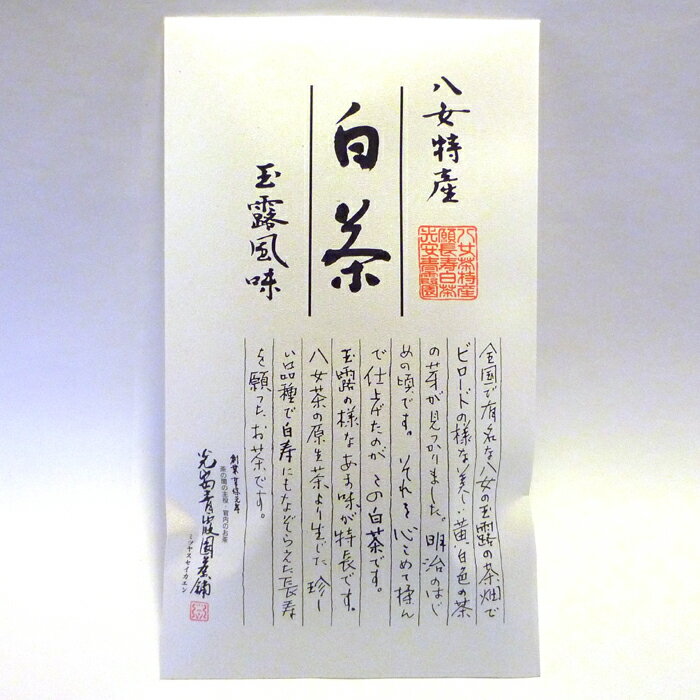 八女特産
八女茶特産
願長寿白茶
光安青霞園
白茶
玉露風味
全国で有名な八女の玉露の茶畑で
ビロードの様な美しい黄白色の茶
の芽が見つかりました。明治のはじ
めの頃です。それを心こめて揉ん
で仕上げたのが、この白茶です。
玉露の様なあま味が特長です。
八女茶の原生茶より生じた珍し
い品種で白寿にもなぞらえた長寿
を願ったお茶です。
創業享保元年
茶の間の主役・官内のお茶
光安青霞園茶舗
ミツヤスセイカエン